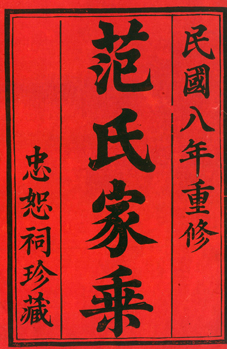 民國八年重修
范氏家乗
忠恕祠珍藏